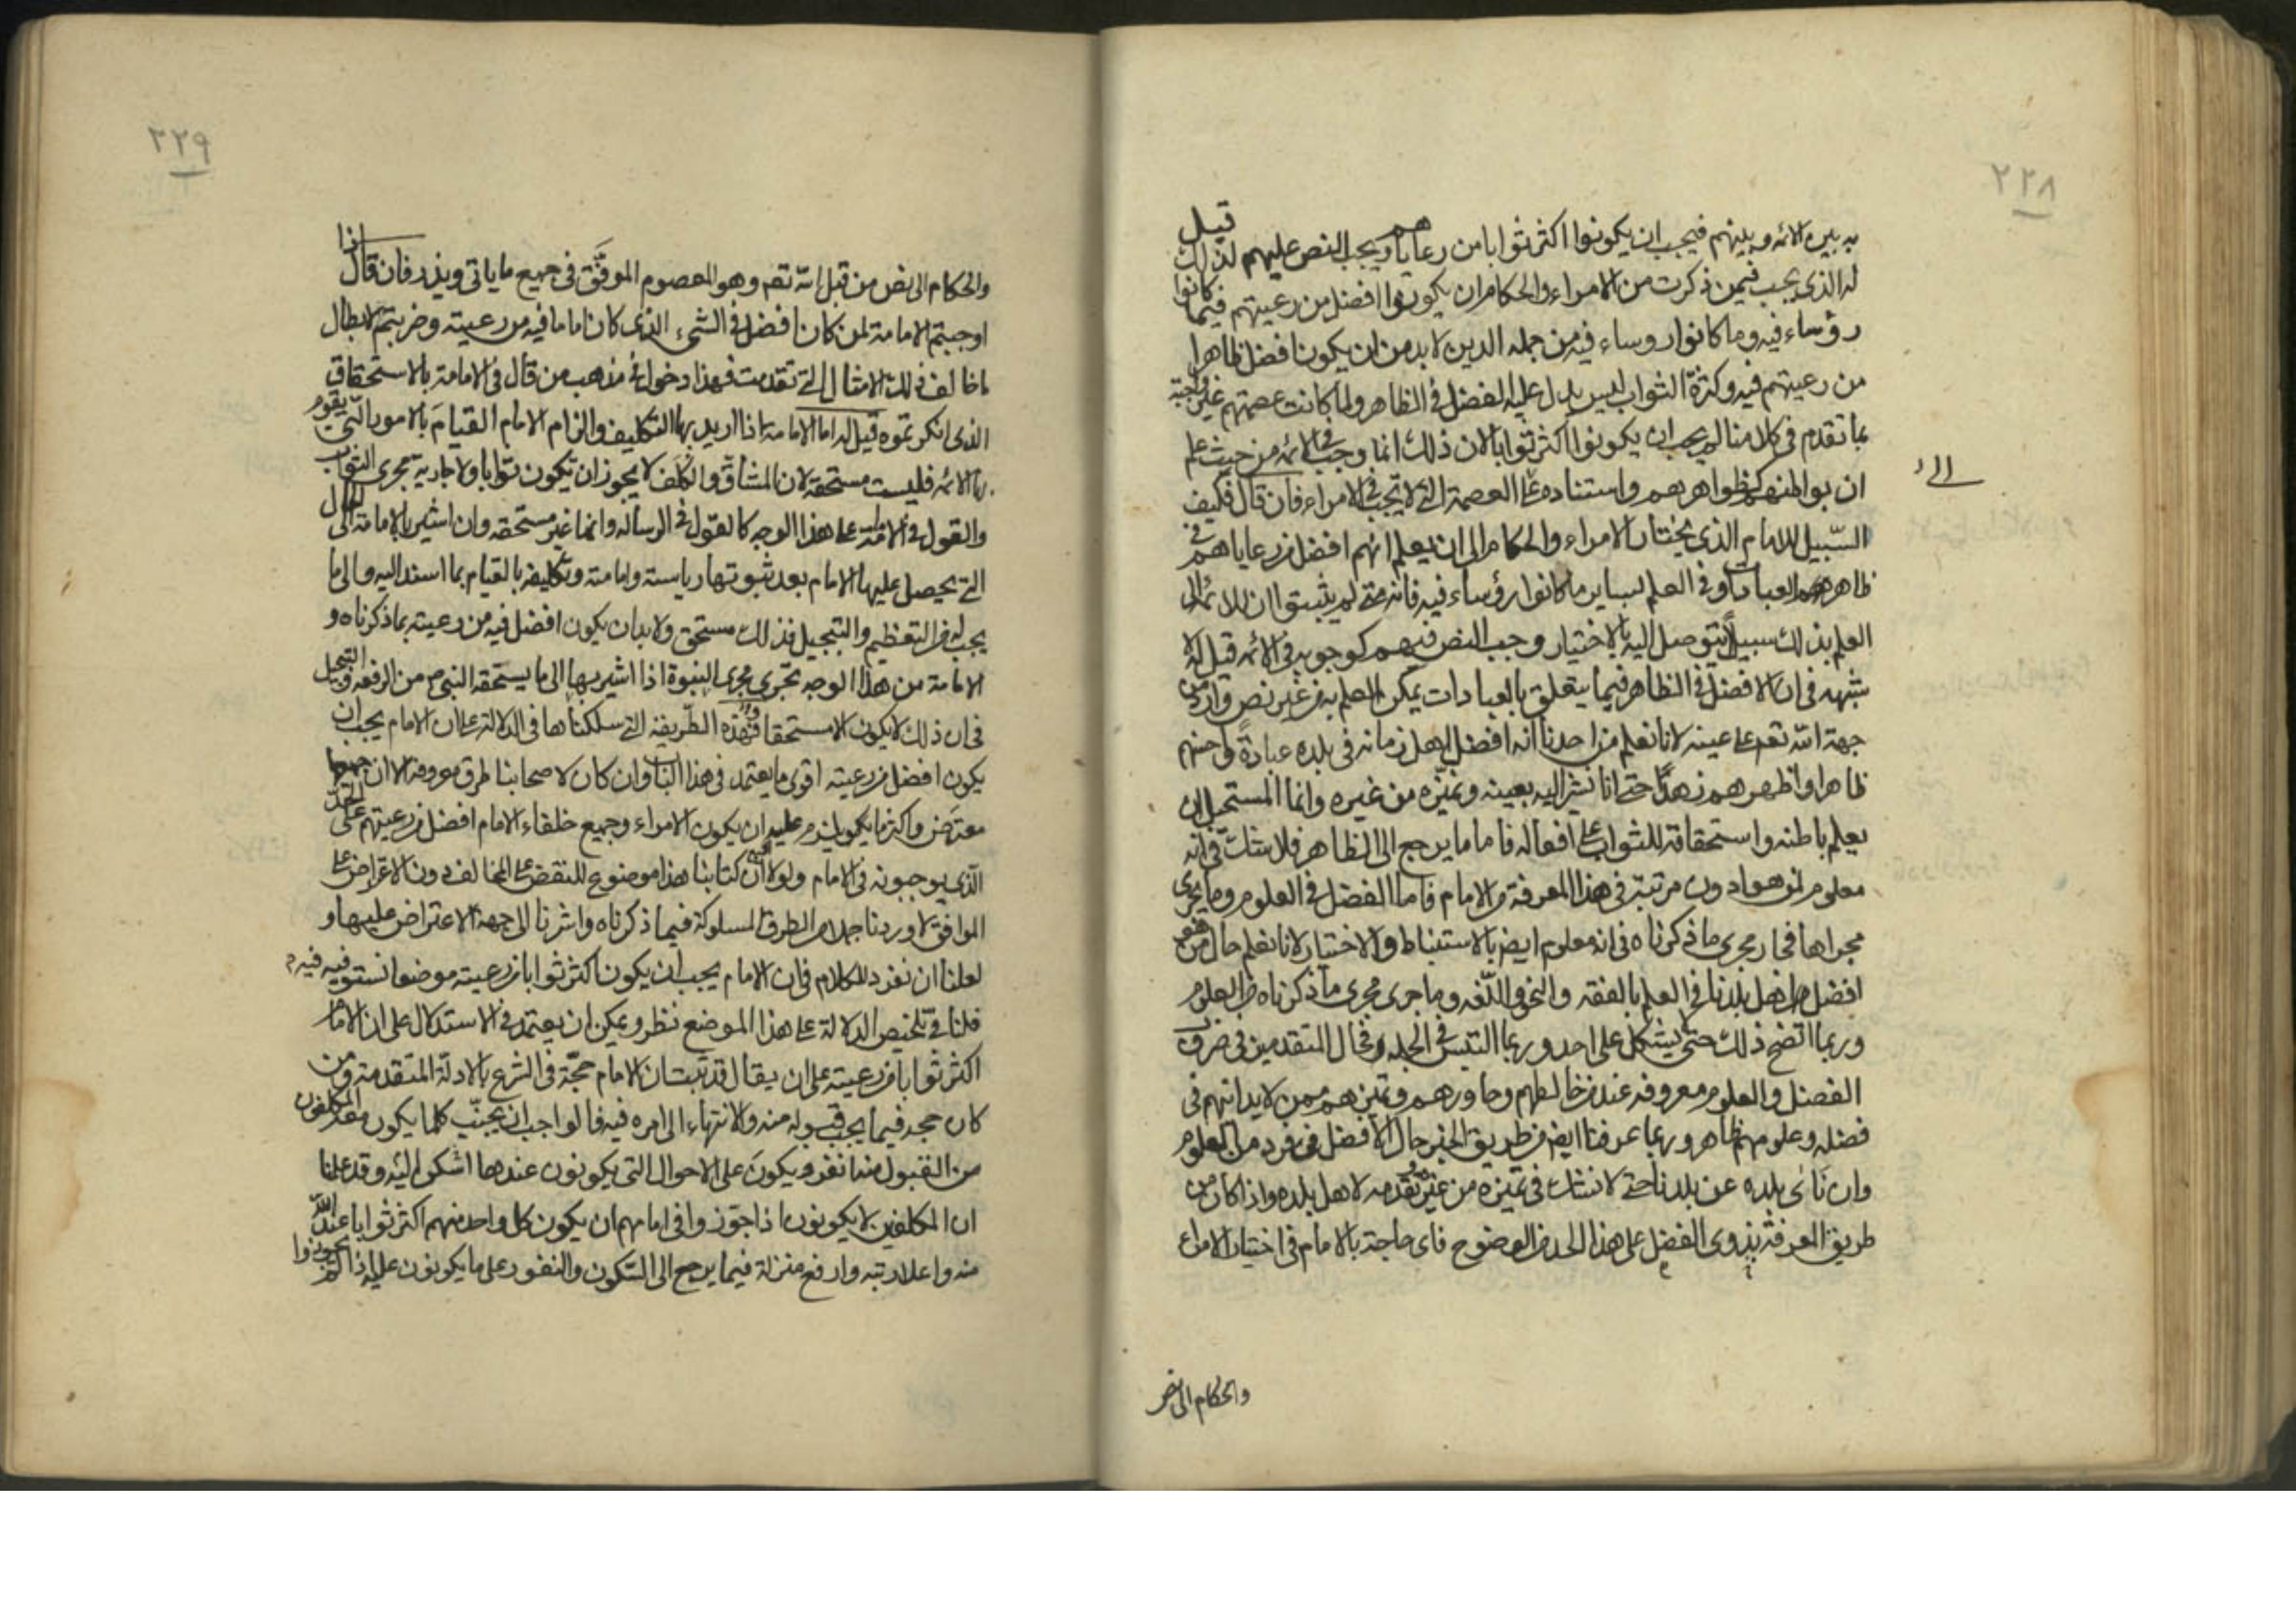 ٢٢٨
به بين الائمه وبينهم فيجب ان يكونوا اكثر ثوابا من رعاياهم ويجب النص عليهم لذلك قيل
له الذي يجب فيمن ذكرت من الامراء والحكام ان يكونوا افضل من رعيتهم فيما كانوا
رؤساء فيه وما كانوا روساء فيه من جمله الدين لابد من ان يكون افضل ظاهرا
من رعيتهم فيه وكثرة الثواب ليس يدل عليه الفضل في الظاهر ولما كانت عصمتهم غير واجبة
بما تقدم في كلامنا لم يجب ان يكونوا اكثر ثوابا لان ذلك انما وجب في الائمه من حيث علم
ان بواطنهم كظواهرهم واستناده على العصمة التي لا تجب في الامراء فان قال فكيف
الى
السبيل للامام الذي يختار الامراء والحكام الى ان يعلم انهم افضل من رعاياهم في
ظاهر العبادات وفي العلم بساير ما كانوا رؤساء فيه فانه متى لم يثبتوا ان للائمة الى
العلم بذلك سبيلا يتوصل اليه بالاختيار وجب النص فيهم كوجوبه في الائمه قيل له لا
شبهه في ان الافضل في الظاهر فيما يتعلق بالعبادات يمكن العلم به من غير نص وارد من
جهة الله تعم على عينه لانا نعلم من احدنا انه افضل اهل زمانه في بلده عبادة واحسنهم
ظاهرا واظهرهم زهدا حتى انا نشير اليه بعينه ونميزه من غيره وانما المستحيل ان
يعلم باطنه واستحقاقه للثواب على افعاله فاما ما يرجع الى الظاهر فلا شك في انه
معلوم لمن هو ادون مرتبة في هذا المعرفة من الامام فاما الفضل في العلوم وما يجرى
مجراها فجار مجرى ما ذكرناه في انه معلوم ايضا بالاستنباط والاختبار لانا نعلم حال من هو
افضل اهل بلدنا في العلم بالفقه والنحو واللغه وما جرى مجرى ما ذكرناه من العلوم
وربما اتضح ذلك حتى لا يشكل على احد وربما التبس في الجمله وحال المتقدمين في ضروب
الفضل والعلوم معروفه عند من خالطهم وجاورهم وتميزهم ممن لا يدانيهم في
فضله وعلومهم ظاهر وربما عرفنا ايضا من طريق الخبر حال الافضل في فرد من العلوم
وان نأى بلده عن بلدنا حتى لا نشك في تميزه من غيره وتقدمه لاهل بلده واذا كان من
طريق المعرفة بذوى الفضل على هذا الحد من الوضوح فاى حاجة بالامام في اختيار الامراء
والحكام الى نص
٢٢٩
والحكام الى نص من قبل الله تعم وهو المعصوم الموفق في جميع ما ياتى ويذر فان قال اذا
اوجبتم الامامة لمن كان افضل في الشيء الذي كان اماما فيه من رعيته وضربتم لابطال
ما خالف ذلك الامثال التي تقدمت فهذا دخول في مذهب من قال في الامامة بالاستحقاق
الذي انكرتموه قيل له اما الامامة اذا اريد بها التكليف والزام الامام القيام بالامور التي يقوم
بها الائمه فليست مستحقة لان المشاق والكلف لا يجوز ان تكون ثوابا ولا جارية مجرى الثواب
والقول في الامامة على هذا الوجه كالقول في الرسالة وانها غير مستحقه وان اشير بالامامة الى الحال
التي يحصل عليها الامام بعد ثبوتها رياسته وامامته وتكليفه بالقيام بما اسند اليه والى ما
يجب له من التعظيم والتبجيل فذلك مستحق ولابد ان يكون افضل فيه من رعيته بما ذكرناه و
الامامة من هذا الوجه تجرى مجرى النبوة اذا اشير بها الى ما يستحقه النبي من الرفعه والتبجيل
في ان ذلك لا يكون الا مستحقا وهذه الطريقة التي سلكناها في الدلالة على ان الامام يجب ان
يكون افضل من رعيته اقوى ما يعتمد في هذا الباب وان كان لاصحابنا طرق معروفة الا ان جميعها
معترض واكثر ما يكون يلزم عليه ان يكون الامراء وجميع خلفاء الامام افضل من رعيتهم على الحد
الذي يوجبونه في الامام ولولا ان كتابنا هذا موضوع للنقض على المخالف دون الاعتراض على
الموافق لاوردنا جملا من الطرق المسلوكة فيما ذكرناه واشرنا الى جهة الاعتراض عليها و
لعلنا ان نفرد للكلام في ان الامام يجب ان يكون اكثر ثوابا من رعيته موضعا نستوفيه فيه
فلنا في تلخيص الدلالة على هذا الموضع نظر ويمكن ان يعتمد في الاستدلال على ان الامام
اكثر ثوابا من رعيته على ان يقال قد ثبت ان الامام حجة في الشرع بالادلة المتقدمة ومن
كان حجه فيما يجب قبوله منه والانتهاء الى امره فيه فالواجب ان يجنب كلما يكون معه المكلفون
من القبول منه انفر ويكون على الاحوال التي يكونون عندها اسكن اليه وقد علمنا
ان المكلفين لا يكونون اذا جوزوا في امامهم ان يكون كل واحد منهم اكثر ثوابا عند الله
منه واعلا رتبه وارفع منزلة فيما يرجع الى السكون والنفور على ما يكونون عليه اذا لم يجوزوا